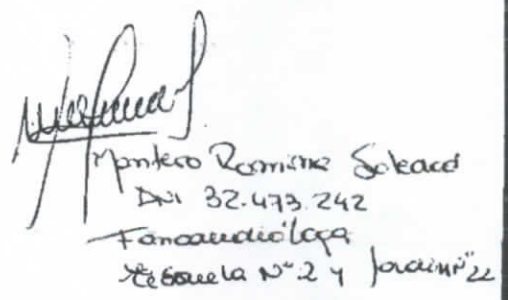 Montero Romina Soledad
DNI 32.473.242
Fonoaudióloga
Escuela Nº 2 y Jardín Nº 22